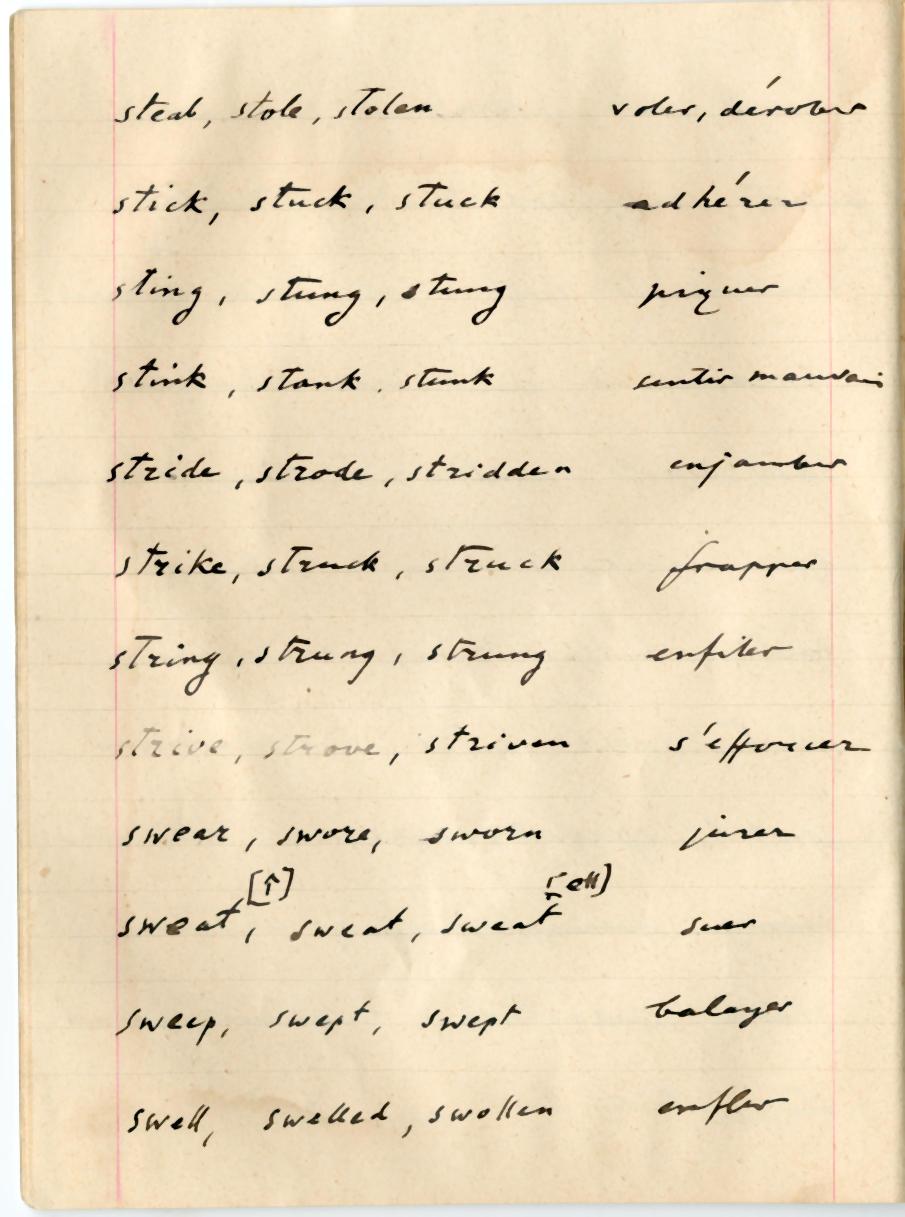 steal, stole, stolen voler, dérober
stick, stuck, stuck adhérer
sting, stung, stung piquer
stink, stank, stunk sentir mauvais
stride, strode, stridden enjamber
strike, struck, struck frapper
string, strung, strung enfiler
strive, strove, striven s'efforcer
swear, swore, sworn jurer
[↑] [ell]
sweat, sweat, sweat suer
sweep, swept, swept balayer
swell, swelled, swollen enfler